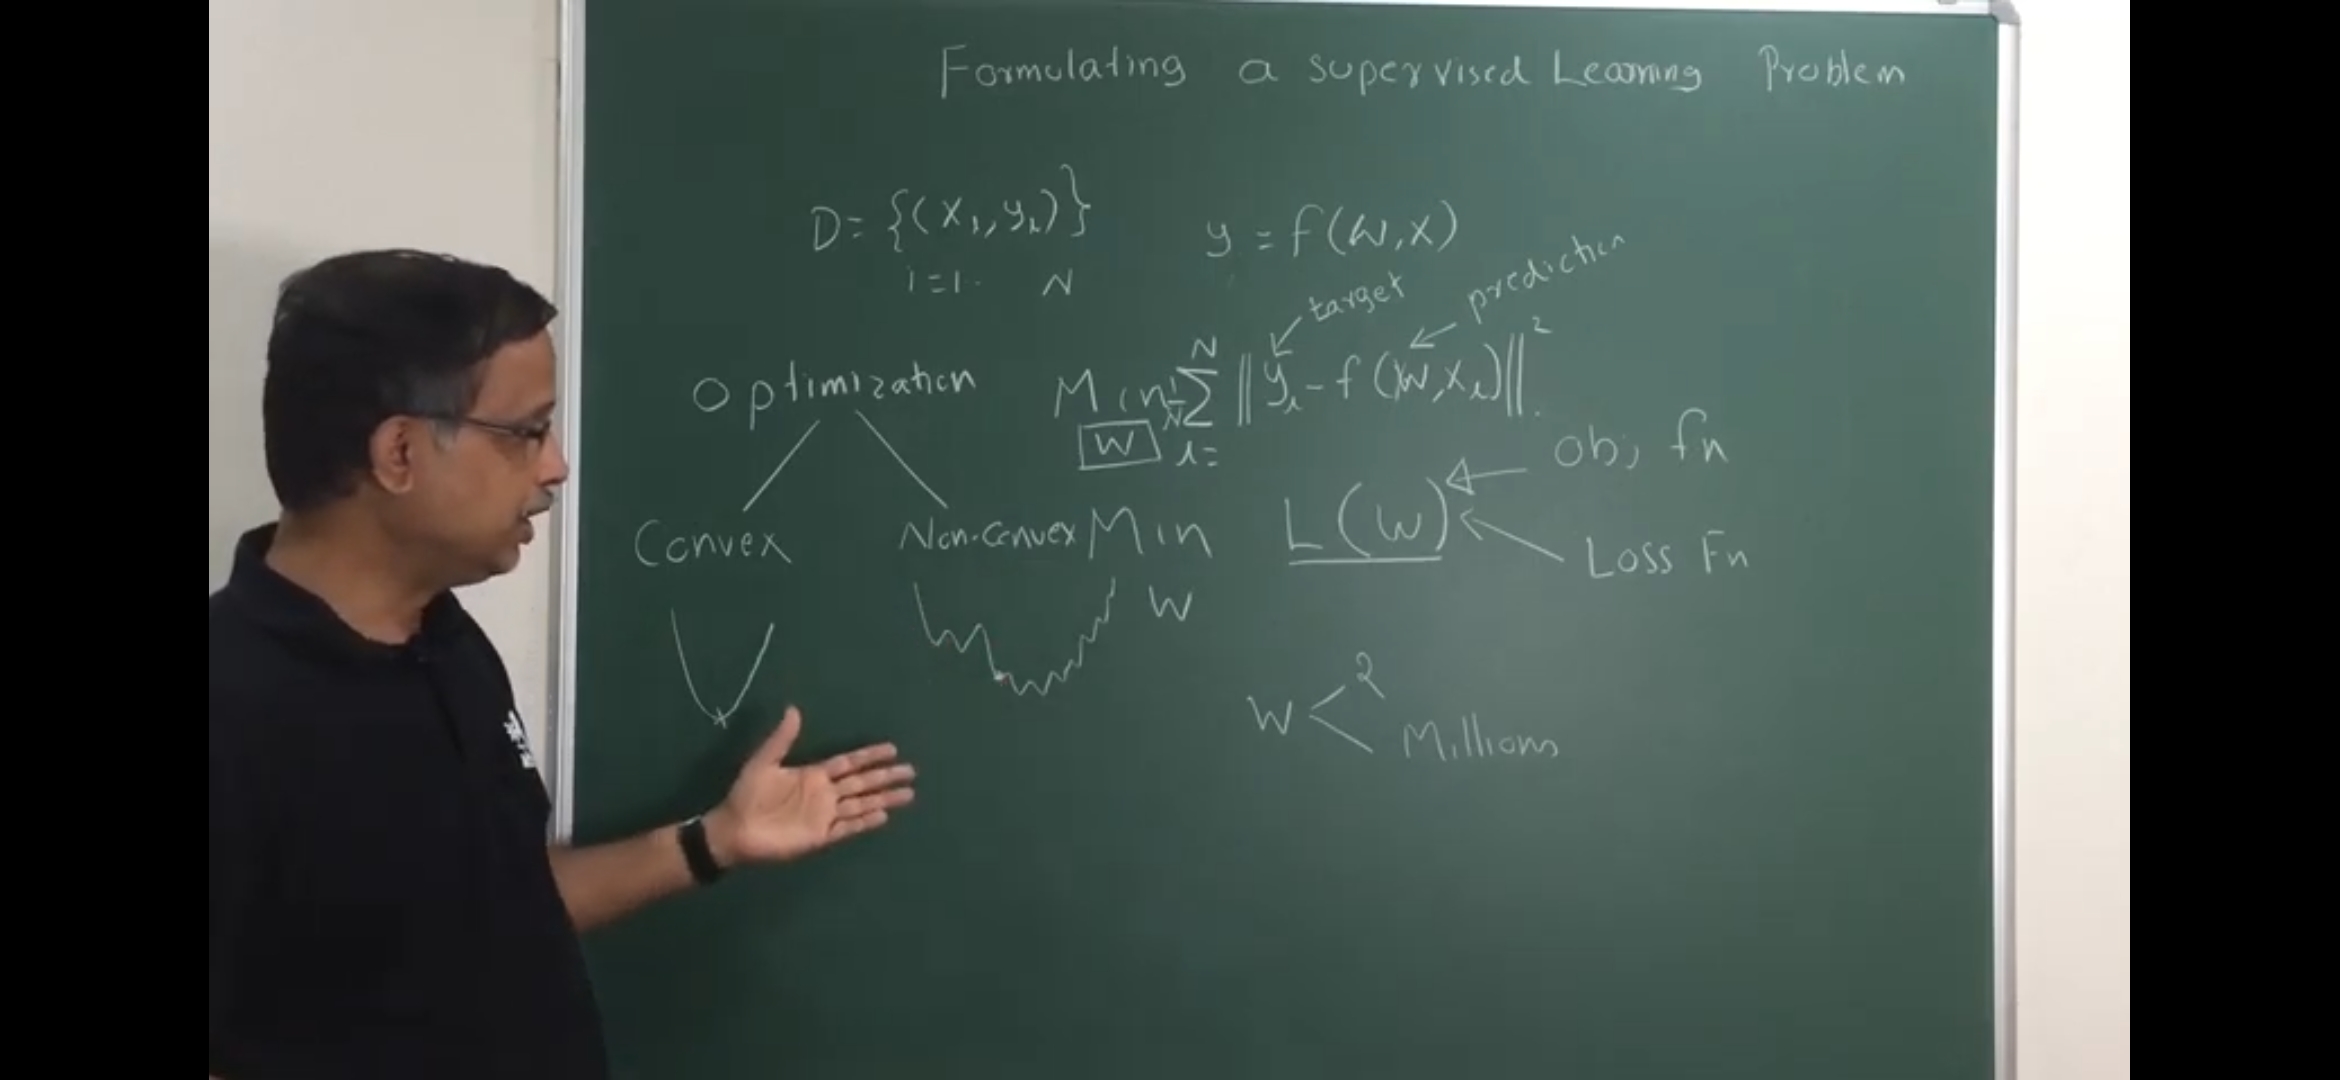 Formulating a supervised Learning Problem
D = {(x_i, y_i)} y = f(W, x)
i = 1. N
target prediction
Optimization Min 1/N Σ || y_i - f(W, x_i) ||²
N
W i=
obj fn
Convex Non-convex Min L(W)
Loss Fn
W
2
W < Millions